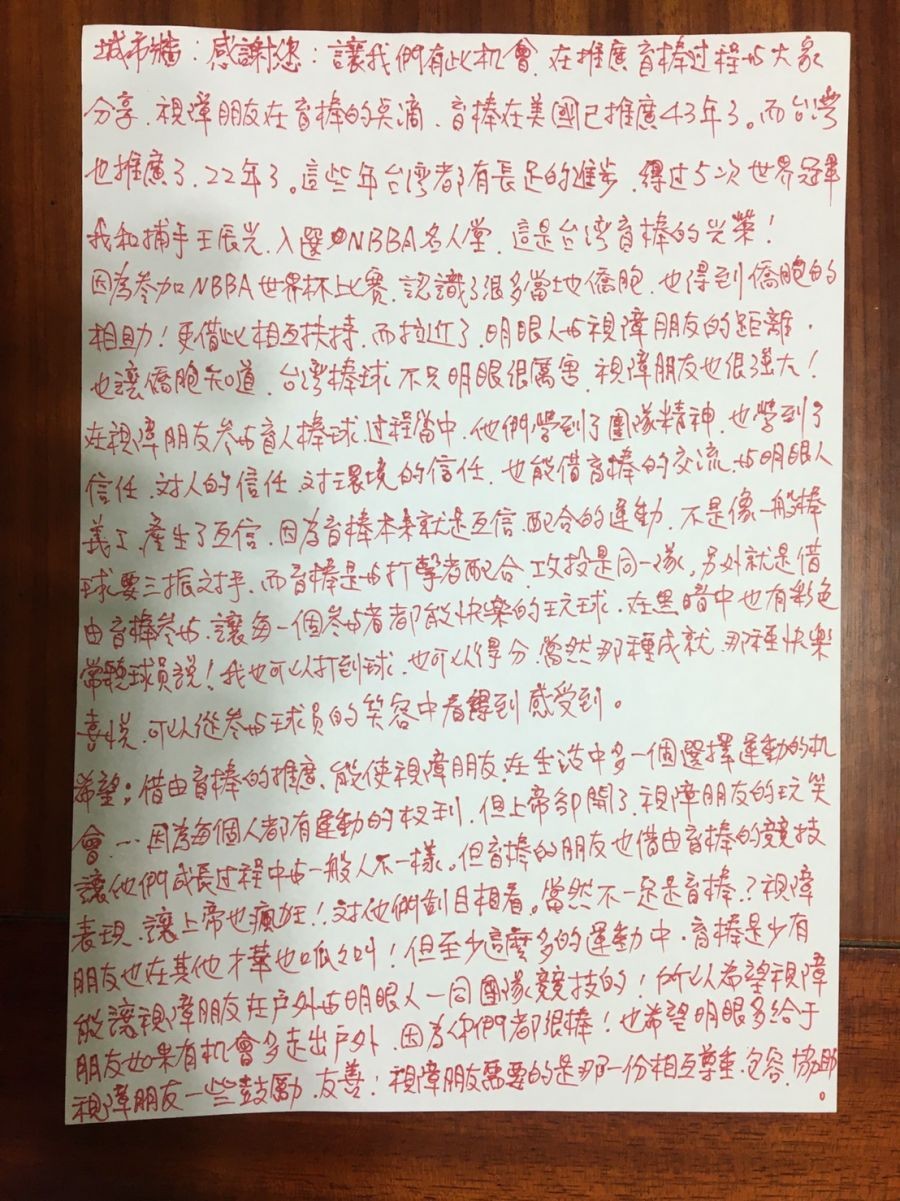 城市牆：感謝您：讓我們有此机會．在推廣盲棒过程与大家
分享．視障朋友在盲棒的点滴．盲棒在美國已推廣43年了。而台湾
也推廣了．22年了。這些年台湾都有長足的進步．得过5次世界冠軍
我和捕手王辰光．入選NBBA名人堂．這是台湾盲棒的光榮！
因為参加NBBA世界杯比賽．認識了很多當地僑胞．也得到僑胞的
相助！更借此相互扶持．而拉近了．明眼人与視障朋友的距離．
也讓僑胞知道．台湾棒球不只明眼很厲害．視障朋友也很強大！
在視障朋友参与盲人棒球．过程當中．他們學到了團隊精神．也學到了
信任．対人的信任．対環境的信任．也能借盲棒的交流．与明眼人
義工．產生了互信．因為盲棒本來就是互信．配合的運動．不是像一般棒
球要三振対手．而盲棒是与打擊者配合．攻投是同一隊。另外就是借
由盲棒参与．讓每一個参与者都能快樂的玩球．在黑暗中也有彩色
常聽球員說！我也可以打到球．也可以得分．當然那種成就．那種快樂
喜悅．可以從参与球員的笑容中看得到感受到。
希望：借由盲棒的推廣．能使視障朋友．在生活中多一個選擇運動的机
會…因為每個人都有運動的权利．但上帝卻開了．視障朋友的玩笑
讓他們成長过程中与一般人不一樣。但盲棒的朋友也借由盲棒的競技
表現．讓上帝也瘋狂！対他們刮目相看。當然不一定是盲棒．？視障
朋友也在其他才華也呱呱叫！但至少這麼多的運動中．盲棒是少有
能讓視障朋友在戶外与明眼人一同團隊競技的！所以希望視障
朋友如果有机會多走出戶外．因為你們都很棒！也希望明眼多給于
視障朋友一些鼓勵．友善！視障朋友需要的是那一份相互尊重．包容．協助。